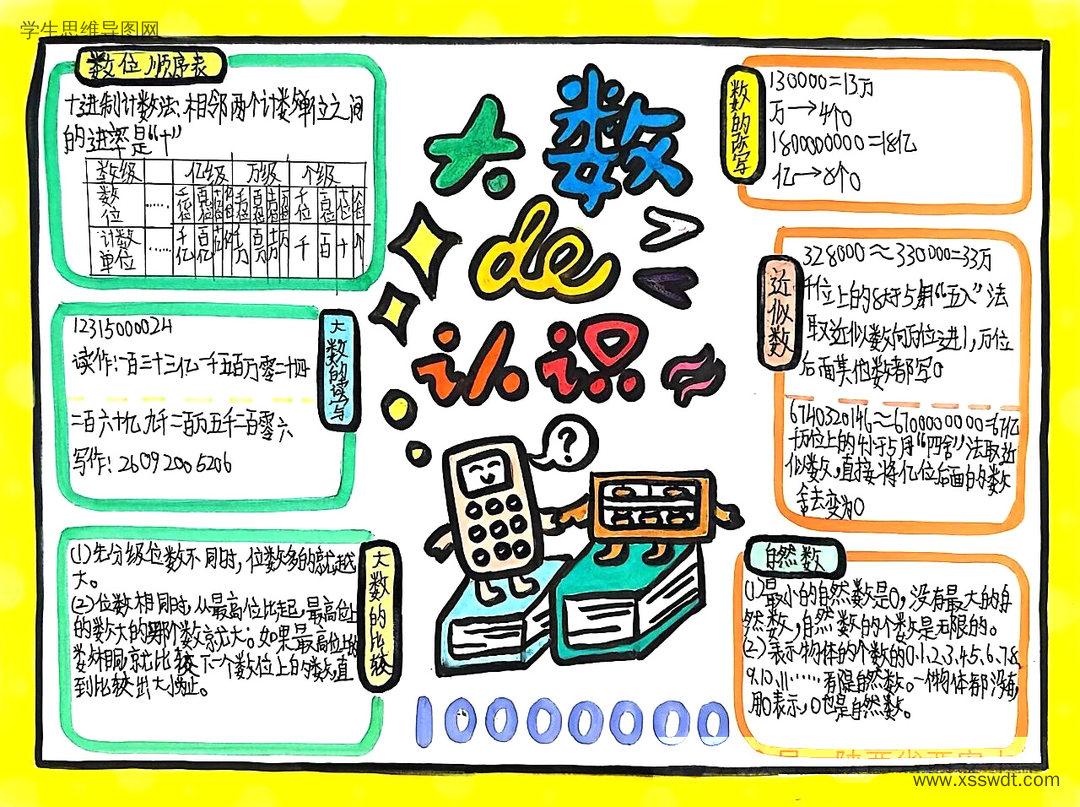 学生思维导图网
数位顺序表
十进制计数法、相邻两个计数单位之间
的进率是“十”
数级 …… 亿级 万级 个级
数位 …… 千亿位 百亿位 十亿位 亿位 千万位 百万位 十万位 万位 千位 百位 十位 个位
计数单位 …… 千亿 百亿 十亿 亿 千万 百万 十万 万 千 百 十 个
大数的读写
12315000024
读作:一百二十三亿一千五百万零二十四
二百六十亿九千二百万五千二百零六
写作:26092005206
大数的比较
(1)先分级位数不同时,位数多的就越
大。
(2)位数相同时,从最高位比起,最高位上
的数大的那个数就大。如果最高位上的
数相同,就比较下一个数位上的数,直
到比较出大小为止。
大数
de
认识
?
10000000
数的改写
130000=13万
万→4个0
1800000000=18亿
亿→8个0
近似数
328000≈330000=33万
千位上的8大于5用“五入”法
取近似数向万位进1,万位
后面其他数都写0
6740320146≈6700000000=67亿
十万位上的4小于5用“四舍”法取近
似数,直接将亿位后面的数
舍去变为0
自然数
(1)最小的自然数是0,没有最大的自
然数,自然数的个数是无限的。
(2)表示物体的个数的0.1.2.3.4.5.6.7.8.
9.10.11……都是自然数。一个物体都没有,
用0表示,0也是自然数。
www.xsswdt.com